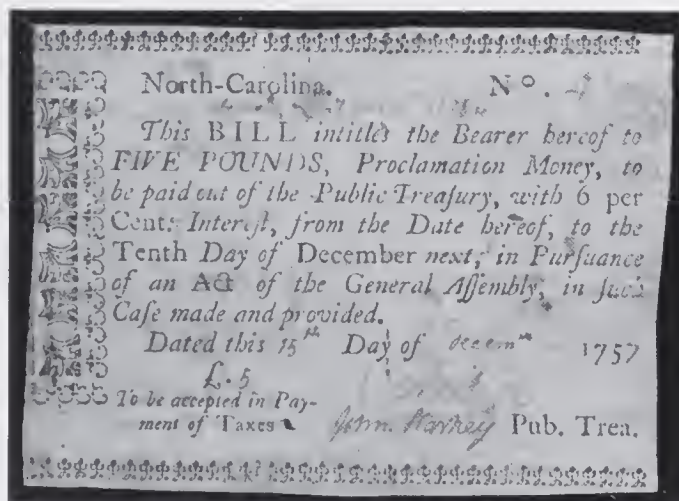 North-Carolina. No.
This BILL intitles the Bearer hereof to
FIVE POUNDS, Proclamation Money, to
be paid out of the Public Treaſury, with 6 per
Cent. Intereſt, from the Date hereof, to the
Tenth Day of December next, in Purſuance
of an Act of the General Aſſembly, in ſuch
Caſe made and provided.
Dated this 15th Day of Decemr 1757
£. 5
To be accepted in Pay-
ment of Taxes
John Starkey Pub. Trea.